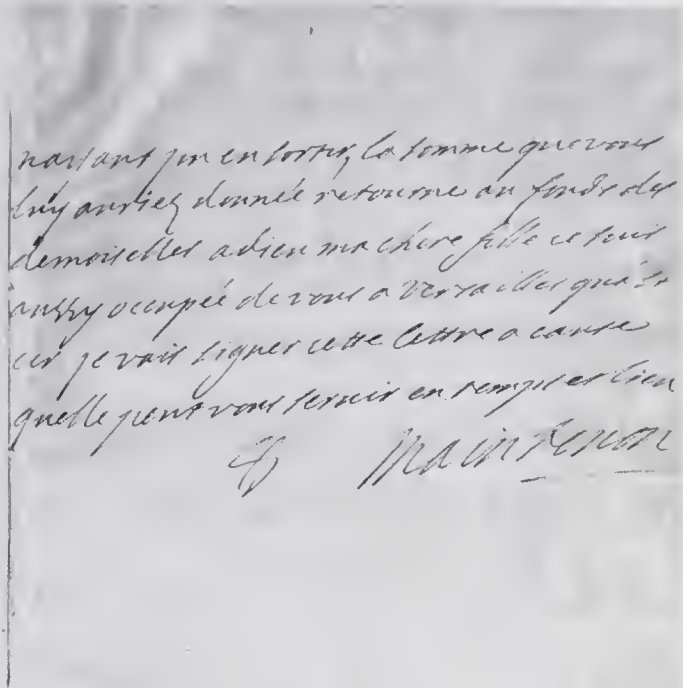 nattant pu en sortir, la somme que vous
luy auriez donnée retourne au fonds des
demoiselles adieu ma chere fille je suis
aussy occupée de vous a Versailles qua St
cir je vais signer cette lettre a cause
quelle peut vous servir en temps et lieu
Maintenon